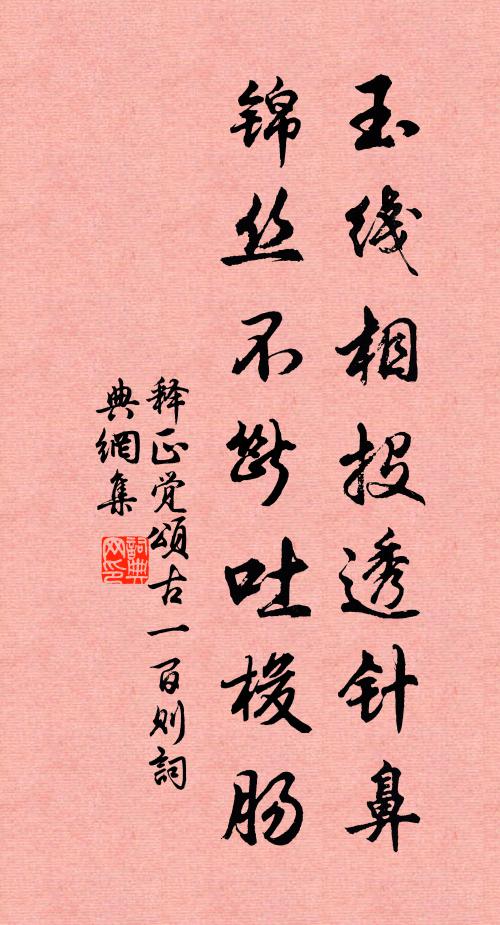 玉线相投透针鼻
锦丝不断吐梭肠
释正觉颂古一百则词
典網集
詞典
网印